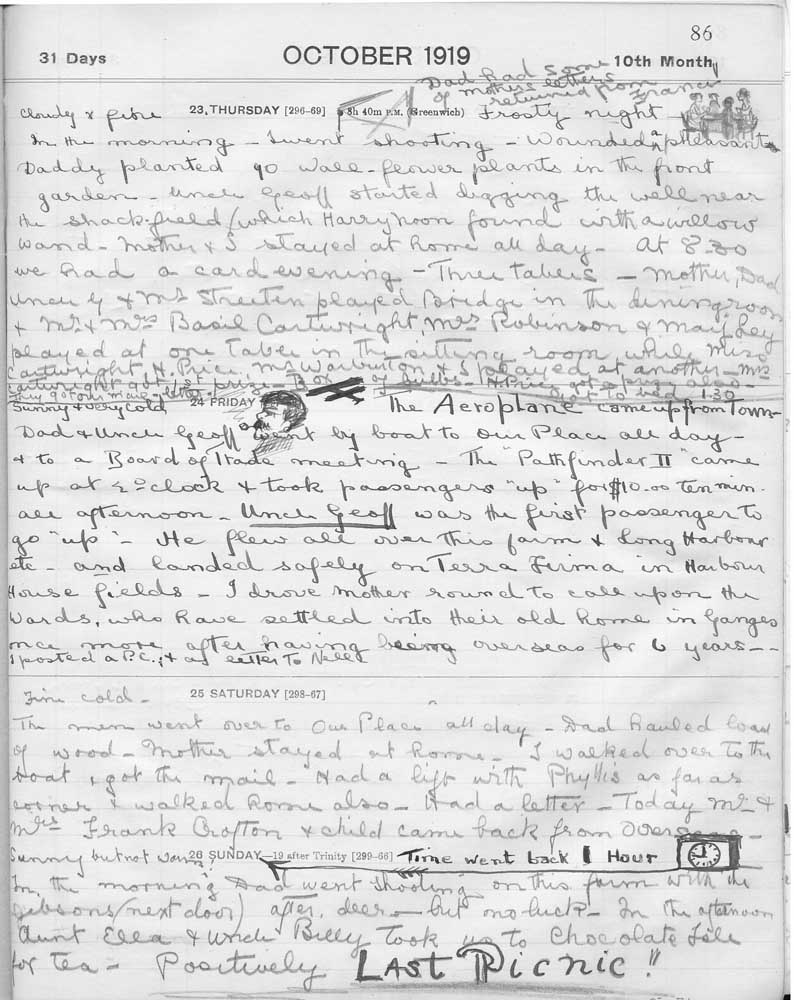 86
31 Days OCTOBER 1919 10th Month
Dad had some
of mothers letters
returned from France
Cloudy & fine 23, THURSDAY [296-69] 8h 40m P.M. (Greenwich) Frosty night
In the morning - I went shooting - Wounded a pheasant
Daddy planted 90 wall-flower plants in the front
garden - Uncle Geoff started digging the well near
the shack-field (which Harry Noon found with a willow
wand - Mother & I stayed at home all day - At 8.30
we had a card evening - Three tables - Mother, Dad
Uncle G & Mrs Streeten played Bridge in the dining room
& Mr & Mrs Basil Cartwright, Mrs Robinson & May Ley
played at one table in the sitting room while Miss
Cartwright, H. Price, Mr Warburton & I played at another - Mrs
Cartwright got 1st prize - Box of bulbs - H Price got a prize also -
got our mail - letter got to bed 1.30
Sunny & very cold 24 FRIDAY The Aeroplane came up from Town -
Dad & Uncle Geoff went by boat to Our Place all day -
& to a Board of Trade meeting - The "Pathfinder II" came
up at 2 o'clock & took passengers "up" for $10.00 ten min.
all afternoon - Uncle Geoff was the first passenger to
go "up" - He flew all over this farm & Long Harbour
etc - and landed safely on Terra Firma in Harbour
House fields - I drove Mother round to call upon the
Wards, who have settled into their old home in Ganges
once more after having being overseas for 6 years --
I posted a P.C., & a letter to Nell
Fine cold - 25 SATURDAY [298-67]
The men went over to Our Place all day - Dad hauled load
of wood - Mother stayed at home - I walked over to the
boat, got the mail - Had a lift with Phyllis as far as
corner & walked home also - Had a letter - Today Mr &
Mrs Frank Crofton & child came back from Overseas -
Sunny but not warm! 26 SUNDAY - 19 after Trinity [299-66] Time went back 1 Hour
In the morning Dad went shooting on this farm with the
Gibsons (next door) after deer - but no luck - In the afternoon
Aunt Ella & Uncle Billy took us to Chocolate Isle
for tea - Positively LAST PICNIC!!